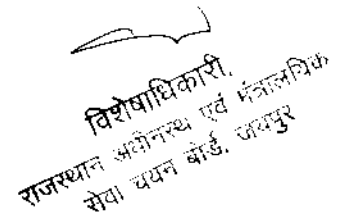 विशेषाधिकारी,
राजस्थान अधीनस्थ एवं मंत्रालयिक
सेवा चयन बोर्ड, जयपुर